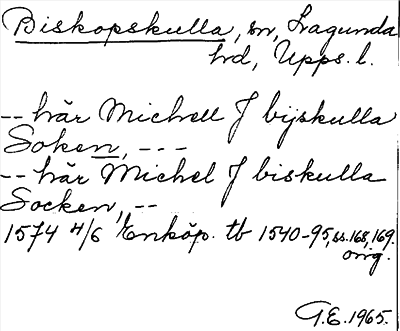 Biskopskulla, sn, Lagunda
hrd, Upps. l.
-- här Michell J bijskulla
Soken, ---
-- här Michel J biskulla
Socken, --
1574 4/6 Enköp. tb 1540-95, ss. 168, 169.
orig.
G.E. 1965.